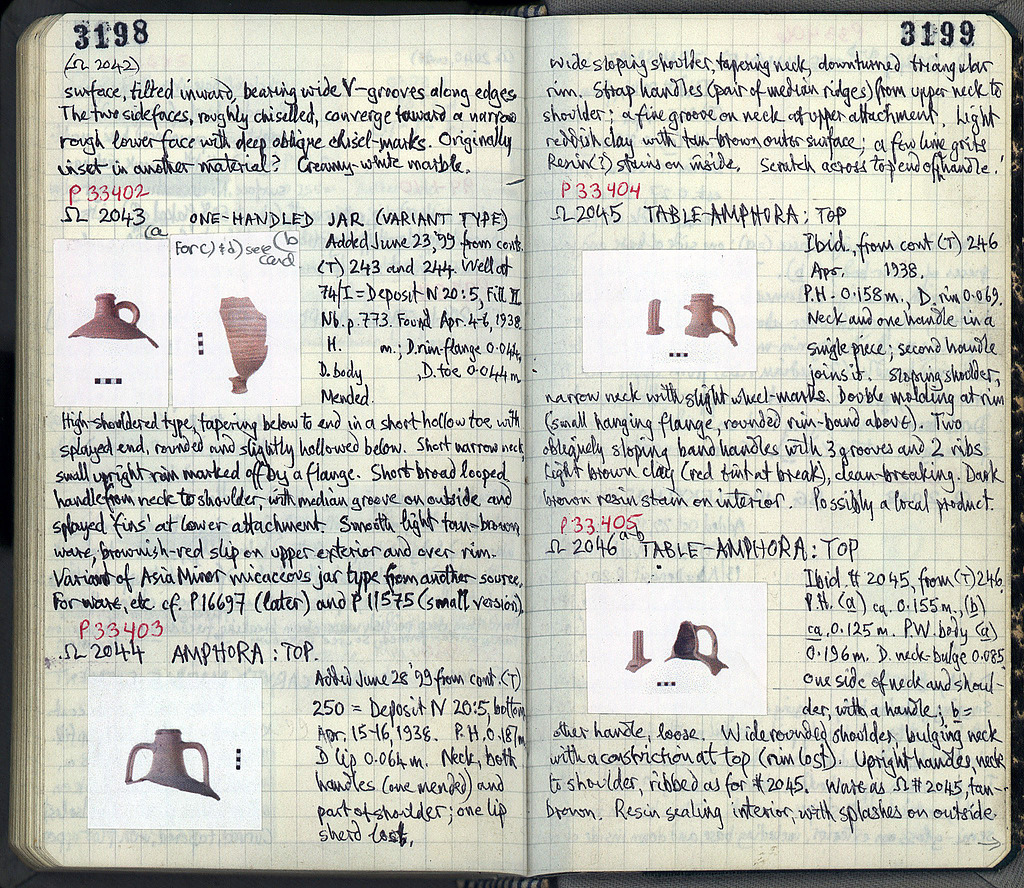 3198
(Ω 2042)
surface, tilted inward, bearing wide V-grooves along edges.
The two side faces, roughly chiselled, converge toward a narrow
rough lower face with deep oblique chisel-marks. Originally
inset in another material? Creamy-white marble.
P 33402
Ω 2043 ONE-HANDLED JAR (VARIANT TYPE)
(a
For c) & d) see card
(b
Added June 23 '99 from cont.
(T) 243 and 244. Well at
74/I = Deposit N 20:5, Fill II
Nb. p. 773. Found Apr. 4-6, 1938.
H. m.; D. rim-flange 0.044,
D. body , D. toe 0.044 m
Mended.
High-shouldered type, tapering below to end in a short hollow toe with
splayed end, rounded and slightly hollowed below. Short narrow neck,
small upright rim marked off by a flange. Short broad looped
handle from neck to shoulder, with median groove on outside and
splayed 'fins' at lower attachment. Smooth light tan-brown
ware, brownish-red slip on upper exterior and over rim.
Variant of Asia Minor micaceous jar type from another source.
For ware, etc. cf. P 16697 (later) and P 11575 (small version).
P 33403
Ω 2044 AMPHORA : TOP.
Added June 28 '99 from cont. (T)
250 = Deposit N 20:5, bottom
Apr. 15-16, 1938. P.H. 0.187 m
D lip 0.064 m. Neck, both
handles (one mended) and
part of shoulder; one lip
sherd lost.
3199
wide sloping shoulder, tapering neck, downturned triangular
rim. Strap handles (pair of median ridges) from upper neck to
shoulder; a fine groove on neck at upper attachment. Light
reddish clay with tan-brown outer surface; a few lime grits
Resin(?) stains on inside. Scratch across top end of handle.
P 33404
Ω 2045 TABLE-AMPHORA : TOP
Ibid., from cont (T) 246
Apr. 1938.
P.H. 0.158 m., D. rim 0.069.
Neck and one handle in a
single piece; second handle
joins it. Sloping shoulder,
narrow neck with slight wheel-marks. Double molding at rim
(small hanging flange, rounded rim-band above). Two
obliquely sloping band handles with 3 grooves and 2 ribs
Light brown clay (red tint at break), clean-breaking. Dark
brown resin stain on interior. Possibly a local product.
P 33405
Ω 2046 a-b TABLE-AMPHORA : TOP
Ibid. # 2045, from (T) 246.
P.H. (a) ca. 0.155 m., (b)
ca. 0.125 m. P.W. body (a)
0.196 m. D. neck-bulge 0.085
one side of neck and shoul-
der, with a handle; b =
other handle, loose. Wide rounded shoulder, bulging neck
with a constriction at top (rim lost). Upright handles, neck
to shoulder, ribbed as for # 2045. Ware as Ω # 2045, tan-
brown. Resin sealing interior, with splashes on outside.
→